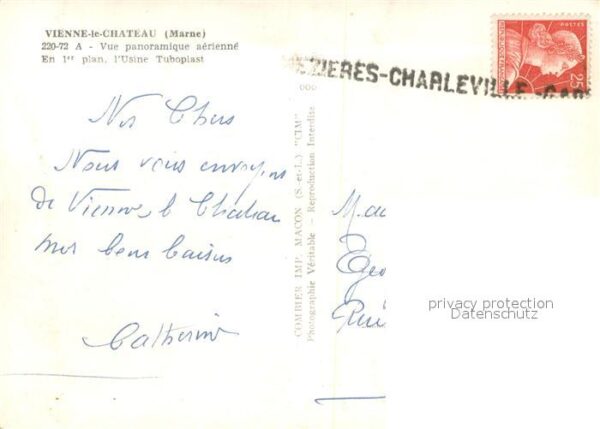 VIENNE-le-CHATEAU (Marne)
220-72 A - Vue panoramique aérienne
En 1er plan, l'Usine Tuboplast
POSTES
25F
MEZIERES-CHARLEVILLE-GARE
Nos Chers
Nous vous envoyons
de Vienne le Chateau
nos bons baisers
Catherine
COMBIER IMP. MACON (S.-et-L.) "CIM"
Photographie Véritable - Reproduction Interdite
privacy protection
Datenschutz